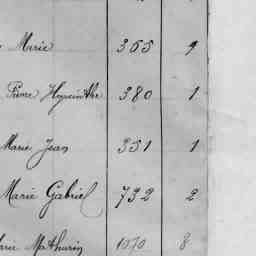 Marie 365 9
Pierre Hyacinthe 380 1
Marie Jean 351 1
Marie Gabriel 732 2
Mathurin 1070 8